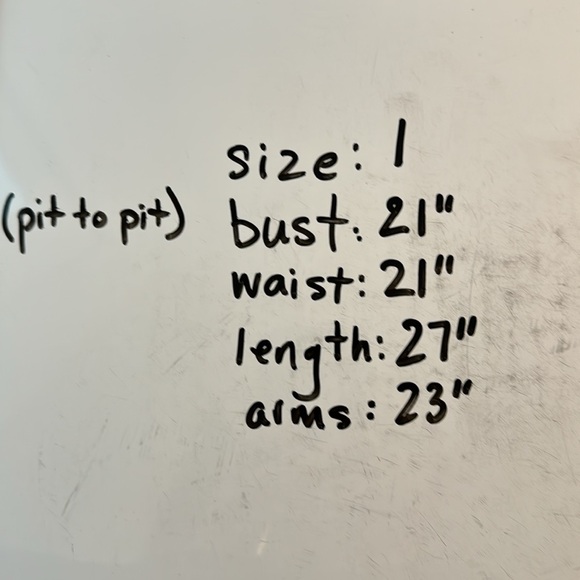 size: 1
(pit to pit) bust: 21"
waist: 21"
length: 27"
arms: 23"